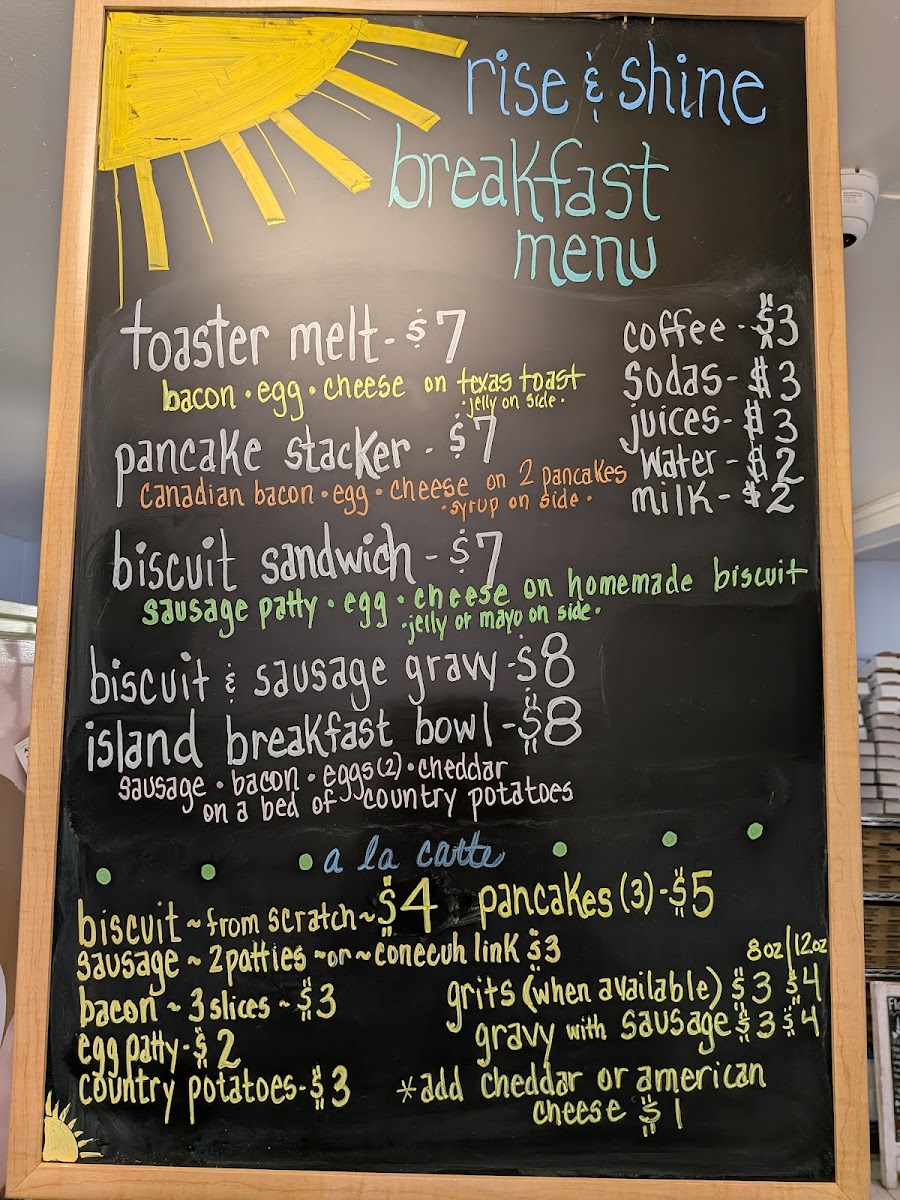 rise & shine
breakfast
menu
toaster melt - $7
bacon • egg • cheese on texas toast
• jelly on side •
pancake stacker - $7
canadian bacon • egg • cheese on 2 pancakes
• syrup on side •
biscuit sandwich - $7
sausage patty • egg • cheese on homemade biscuit
• jelly or mayo on side •
biscuit & sausage gravy - $8
island breakfast bowl - $8
sausage • bacon • eggs (2) • cheddar
on a bed of country potatoes
coffee - $3
sodas - $3
juices - $3
water - $2
milk - $2
a la carte
biscuit ~ from scratch ~ $4
sausage ~ 2 patties ~ or ~ conecuh link $3
bacon ~ 3 slices ~ $3
egg patty - $2
country potatoes - $3
pancakes (3) - $5
8oz | 12oz
grits (when available) $3 $4
gravy with sausage $3 $4
*add cheddar or american
cheese $1